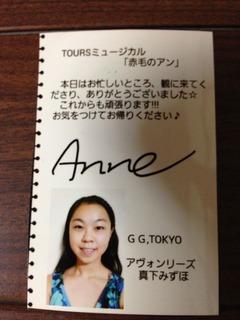 TOURSミュージカル
「赤毛のアン」
本日はお忙しいところ、観に来てく
ださり、ありがとうございました☆
これからも頑張ります!!!
お気をつけてお帰りください♪
Anne
G G,TOKYO
アヴォンリーズ
真下みずほ